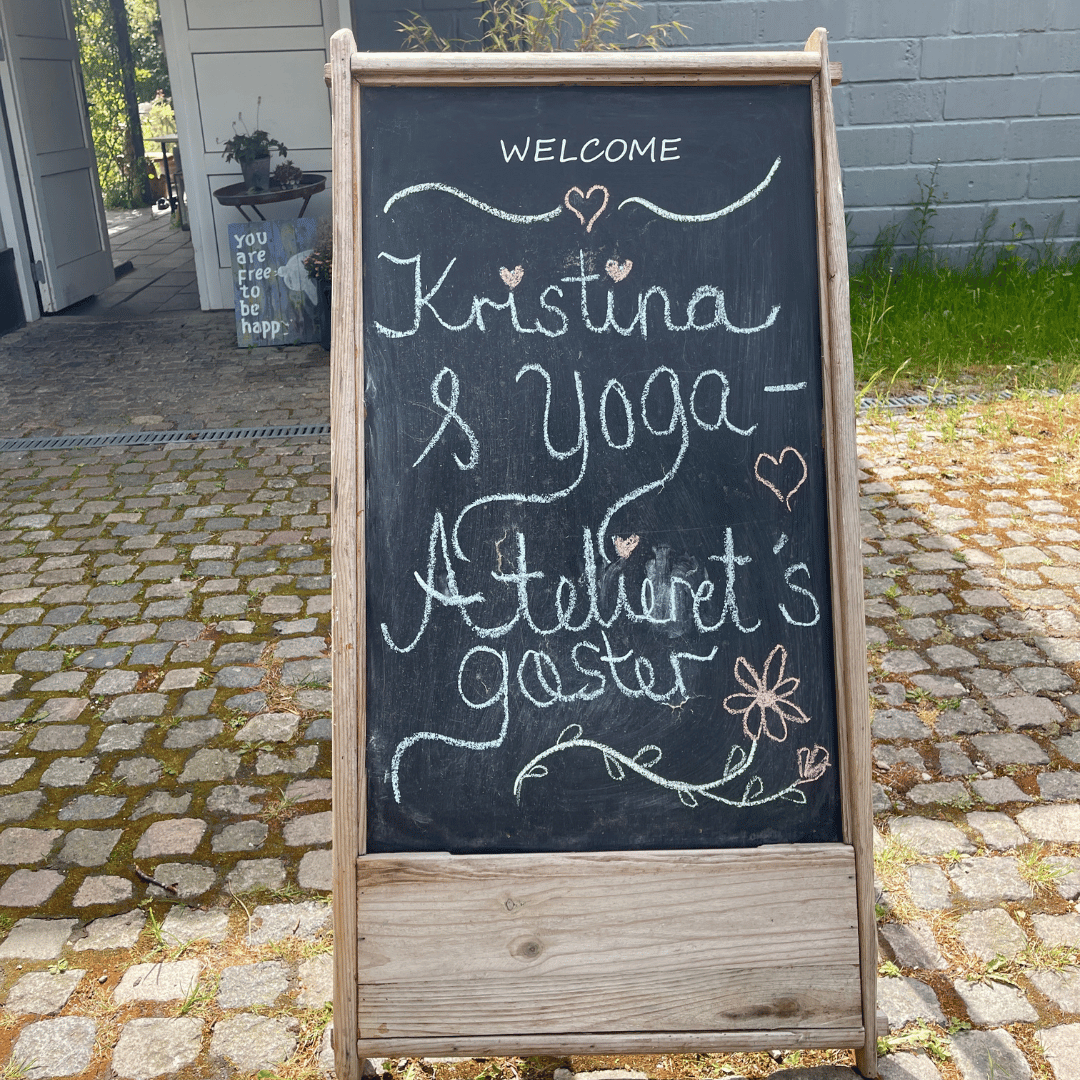 WELCOME
Kristina
& Yoga-
Atelieret's
gæster
you
are
free
to
be
happy